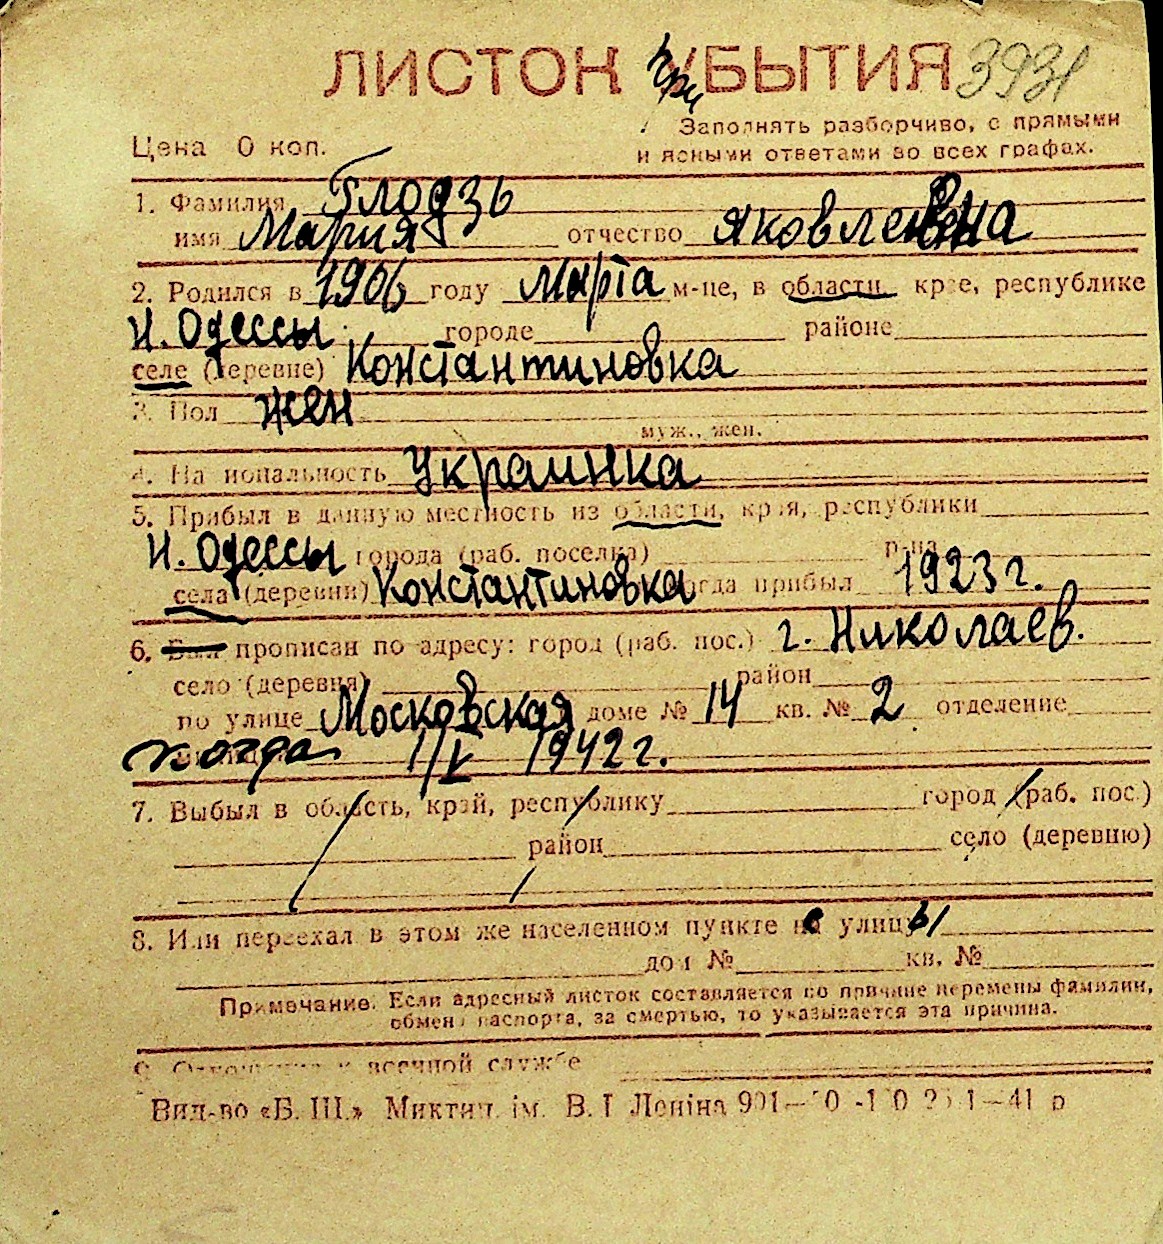 ЛИСТОК при УБЫТИЯ 3931
Заполнять разборчиво, с прямыми
Цена 0 коп.
и ясными ответами во всех графах.
1. Фамилия Глодзь
имя Мария отчество Яковлевна
2. Родился в 1906 году марта м-це, в области крае, республике
Н. Одессы городе районе
селе (деревне) Константиновка
3. Пол жен
муж., жен.
4. Национальность украинка
5. Прибыл в данную местность из области, края, республики
Н. Одессы города (раб. поселка) р-на
села (деревни) Константиновка когда прибыл 1923 г.
6. Был прописан по адресу: город (раб. пос.) г. Николаев.
село (деревня) район
по улице Московская доме № 14 кв. № 2 отделение
когда 1/V 1942 г.
7. Выбыл в область, край, республику город (раб. пос.)
район село (деревню)
8. Или переехал в этом же населенном пункте с улицы
дом № кв. №
Примечание. Если адресный листок составляется по причине перемены фамилии,
обмена паспорта, за смертью, то указывается эта причина.
9. Отношение к военной службе
Вид-во «Б. Ш.» Миктип. ім. В. І Леніна 991